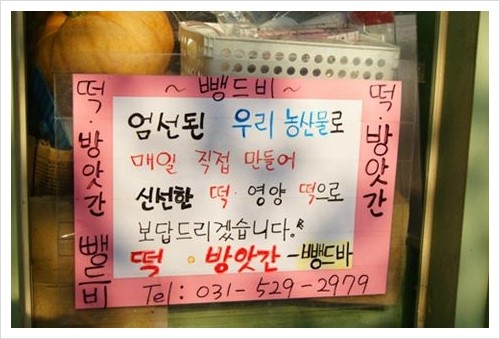 ~ 뺑드비 ~
떡·방앗간 뺑드비
떡·방앗간
엄선된 우리 농산물로
매일 직접 만들어
신선한 떡·영양 떡으로
보답드리겠습니다.
떡·방앗간-뺑드바
Tel : 031-529-2979